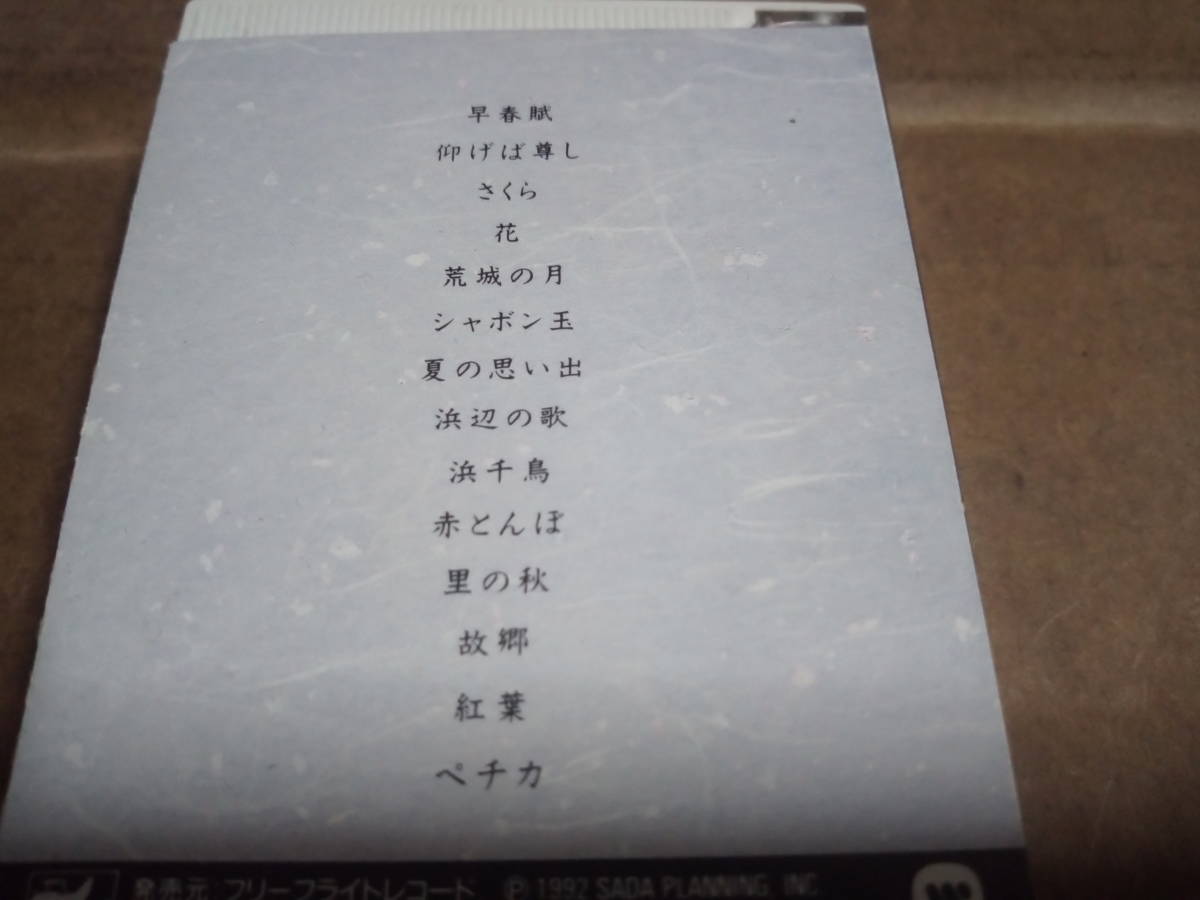 早春賦
仰げば尊し
さくら
花
荒城の月
シャボン玉
夏の思い出
浜辺の歌
浜千鳥
赤とんぼ
里の秋
故郷
紅葉
ペチカ
発売元:フリーフライトレコード Ⓟ 1992 SADA PLANNING, INC